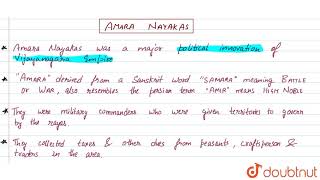 AMARA NAYAKAS
Amara Nayakas was a major political innovation of
Vijayanagara Empire
"AMARA" derived from a Sanskrit word "SAMARA" meaning BATTLE
OR WAR, also resembles the persian term "AMIR" means HIGH NOBLE
They were military commanders who were given territories to govern
by the rayas.
They collected taxes & other dues from peasants, craftsperson &
traders in the area.
doubtnut